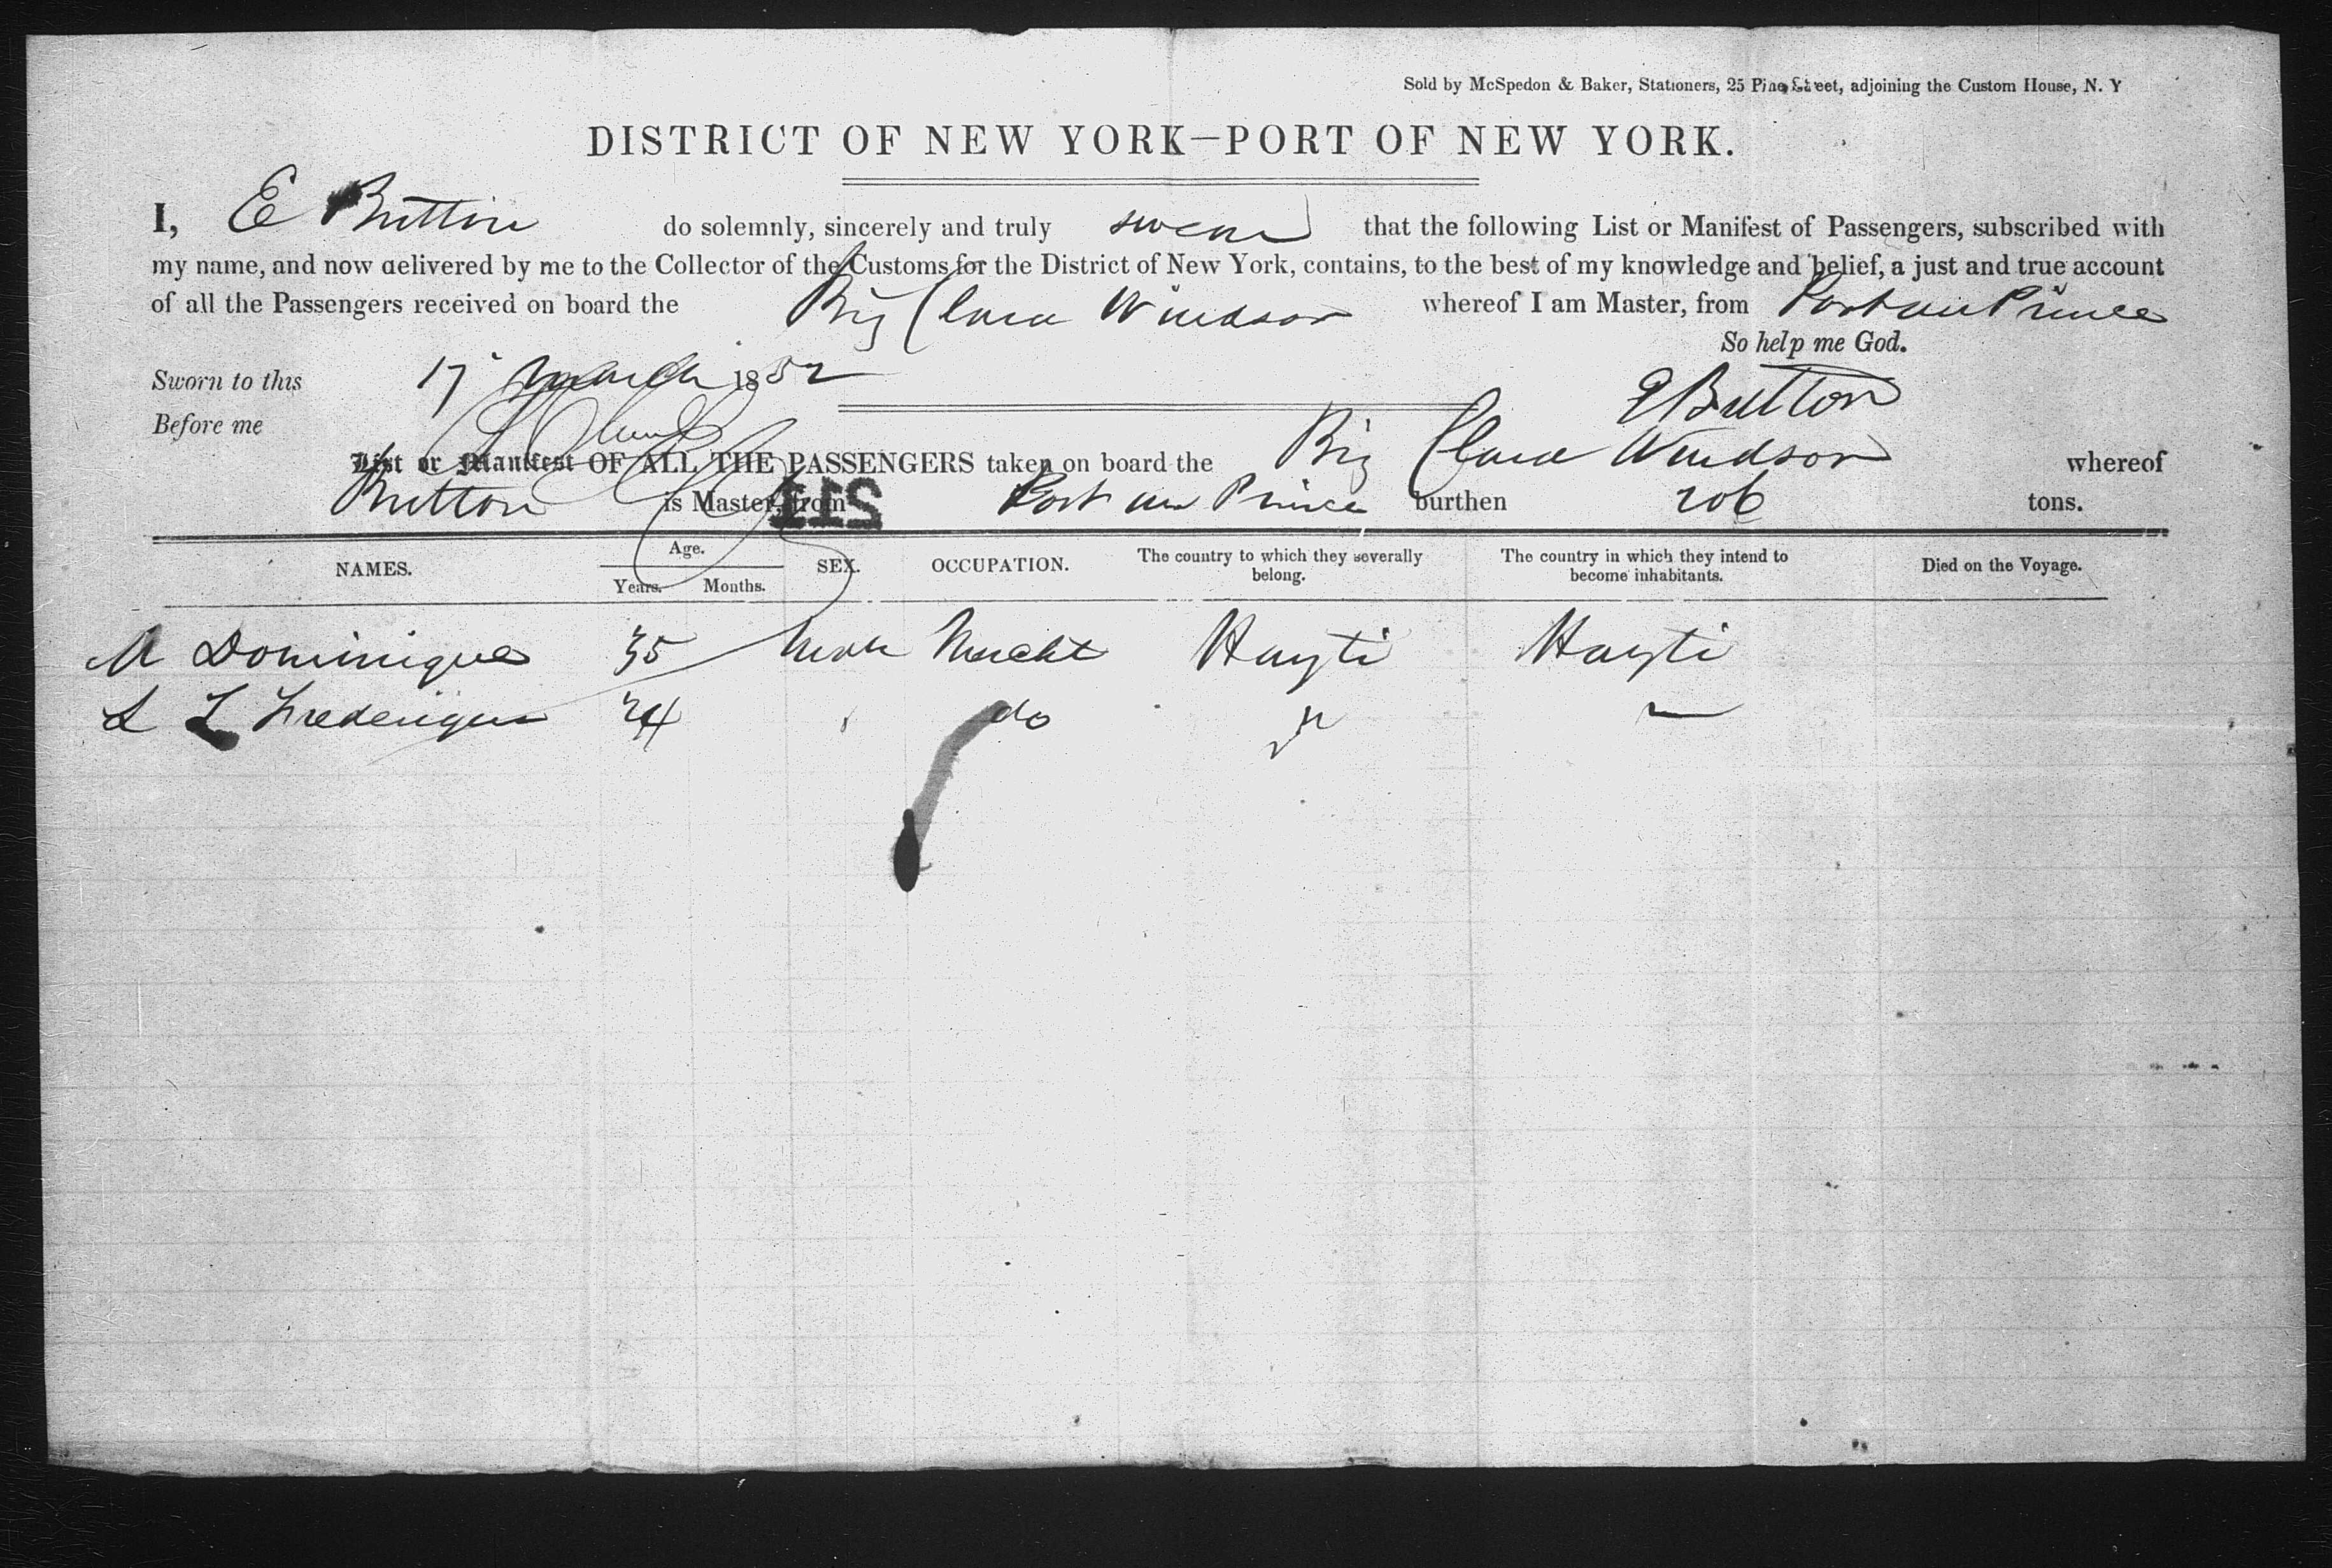 Sold by McSpedon & Baker, Stationers, 25 Pine Street, adjoining the Custom House, N. Y
DISTRICT OF NEW YORK—PORT OF NEW YORK.
I, E Britton do solemnly, sincerely and truly swear that the following List or Manifest of Passengers, subscribed with
my name, and now delivered by me to the Collector of the Customs for the District of New York, contains, to the best of my knowledge and belief, a just and true account
of all the Passengers received on board the Brig Clara Windsor whereof I am Master, from Port au Prince
So help me God.
Sworn to this 17 March 1852
E Britton
Before me
List or Manifest OF ALL THE PASSENGERS taken on board the Brig Clara Windsor whereof
Britton is Master, from Port au Prince burthen 206 tons.
211
NAMES. Age. Years. Months. SEX. OCCUPATION. The country to which they severally belong. The country in which they intend to become inhabitants. Died on the Voyage.
M Dominique 35 Male Mercht Hayti Hayti
L L Frederique 24 do